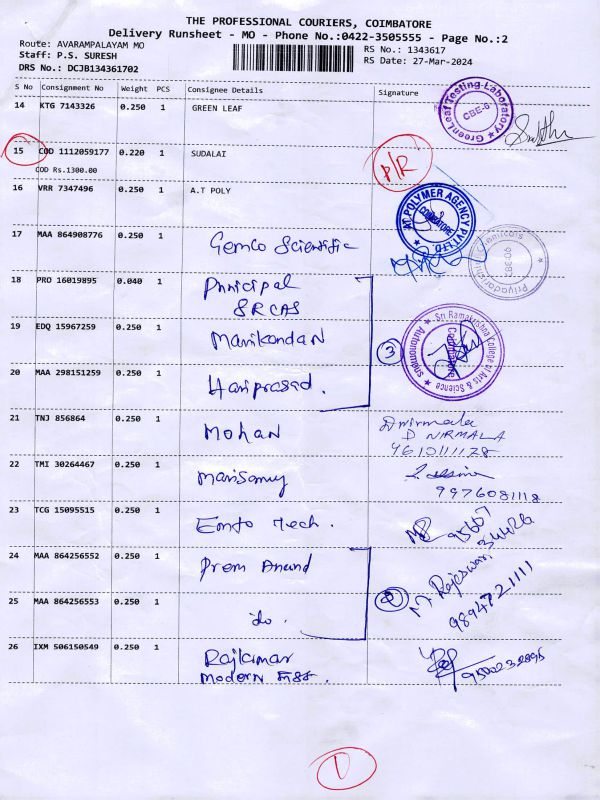 THE PROFESSIONAL COURIERS, COIMBATORE
Delivery Runsheet - MO - Phone No.:0422-3505555 - Page No.:2
Route: AVARAMPALAYAM MO
Staff: P.S. SURESH
DRS No.: DCJB134361702
RS No.: 1343617
RS Date: 27-Mar-2024
S No Consignment No Weight PCS Consignee Details Signature
14 KTG 7143326 0.250 1 GREEN LEAF
GreenLeaf Testing Laboratory CBE-6
15 COD 1112059177 0.220 1 SUDALAI
COD Rs.1300.00
P/R
16 VRR 7347496 0.250 1 A.T POLY
AT POLYMER AGENCY PVT LTD COIMBATORE
17 MAA 864908776 0.250 1 Gemco Scientific
18 PRO 16019895 0.040 1 Principal
SRCAS
19 EDQ 15967259 0.250 1 Manikandan
3
Sri Ramakrishna College of Arts & Science Autonomous Coimbatore
20 MAA 298151259 0.250 1 Hariprasad.
21 TNJ 856864 0.250 1 Mohan Dnirmala
D NIRMALA
22 TMI 30264467 0.250 1 Marisamy
9976081118
23 TCG 15095515 0.250 1 Tech.
24 MAA 864256552 0.250 1 Prem Anand
M Rajeswari
9894721111
2
25 MAA 864256553 0.250 1 do.
26 IXM 506150549 0.250 1 Rajkumar
Modern
1